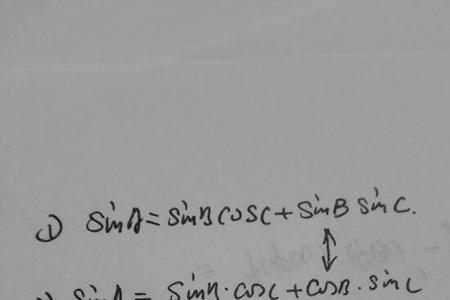 ① sinA=sinBcosC+sinB sinC.
↕
sinA= sinB·cosC+cosB·sinC